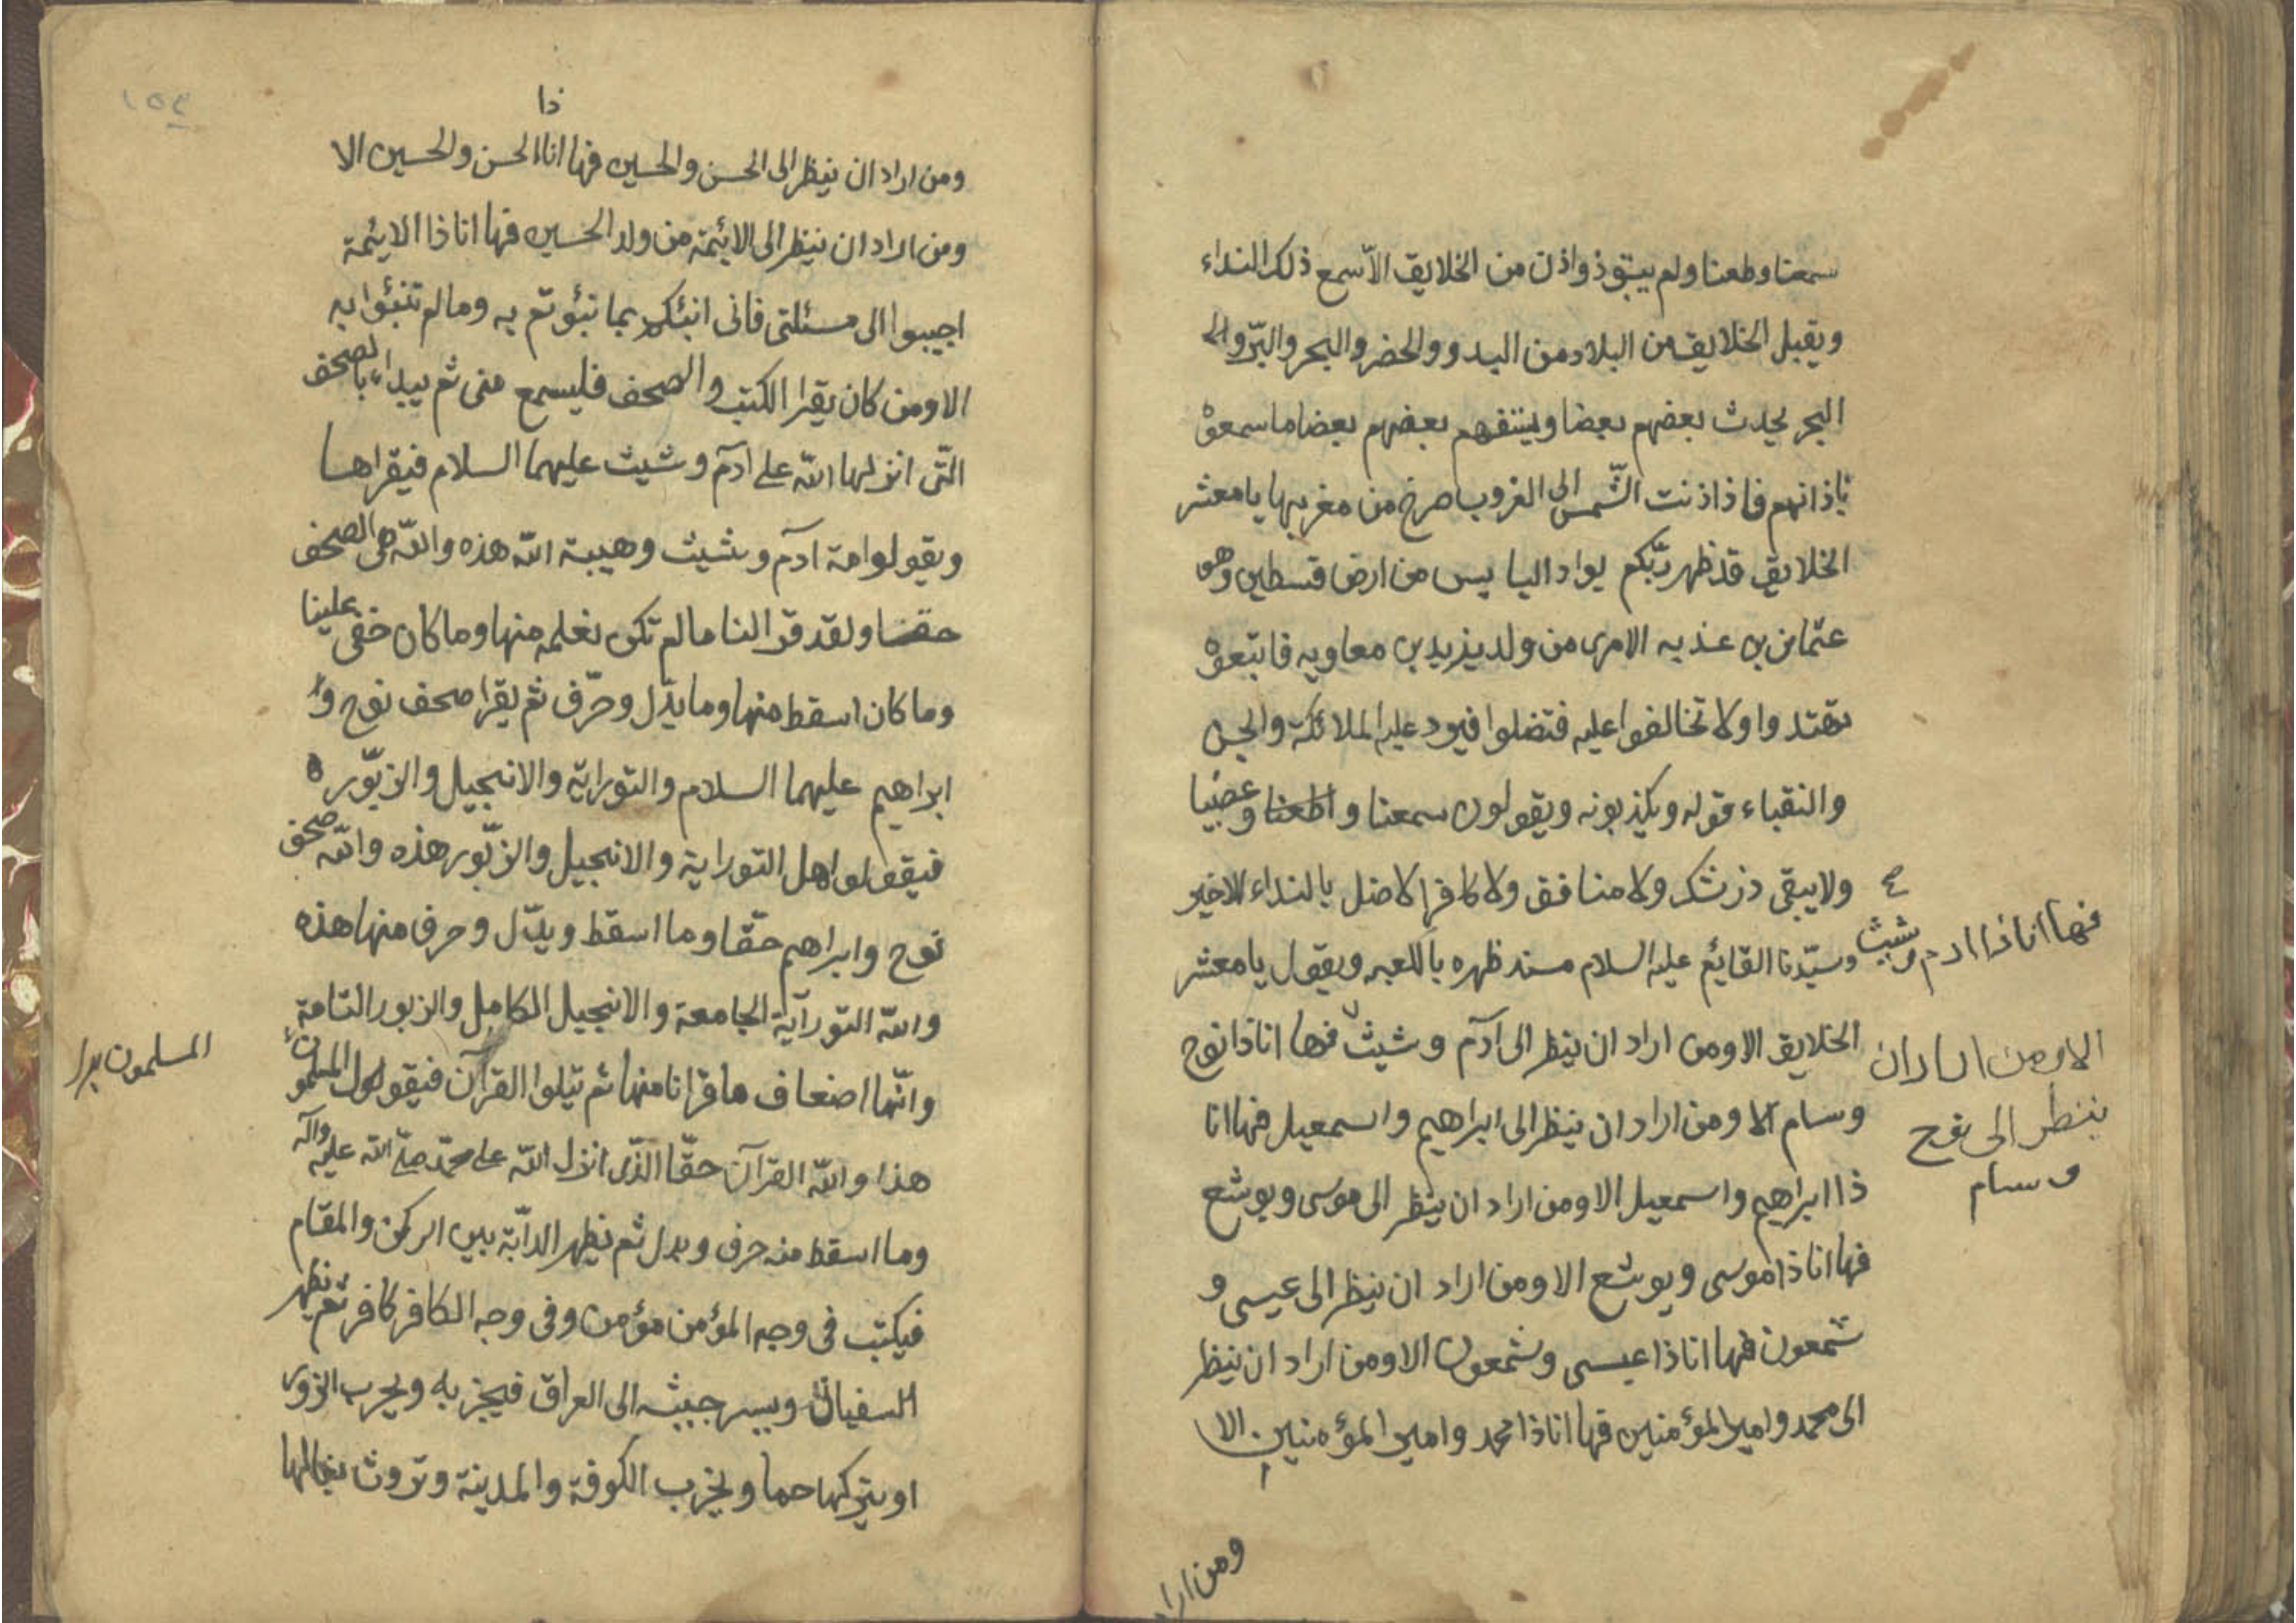 سمعنا وطعنا ولم يبق ذو اذن من الخلايق الّا سمع ذلك النداء
ويقبل الخلايق من البلاد من البدو والحضر والبحر والبرّ والى
البحر يحدث بعضهم بعضا ويستفهم بعضهم بعضا ما سمعوْ
باذانهم فاذا ذنت الشّمس الى الغروب صرخ من مغربها يا معشر
الخلايق قد ظهر ربّكم بواد اليابس من ارض فسطين وهو
عثمان بن عنذبه الامرى من ولد يزيد بن معاويه فاتبعوه
تهتدوا ولا تخالفوا عليه فتضلوا فيرد عليه الملائكة والجن
والنقباء قوله ويكذبونه ويقولون سمعنا واطعنا وعصينا
ولا يبقى ذو شك ولا منافق ولا كافر الا ضل بالنداء الاخير
وسيّدنا القايم عليه السلام مسند ظهره بالكعبه ويقول يا معشر
الخلايق الا ومن اراد ان ينظر الى آدم وشيث فها انا ذا نوح
وسام الا ومن اراد ان ينظر الى ابراهيم واسمعيل فها انا
ذا ابراهيم واسمعيل الا ومن اراد ان ينظر الى موسى ويوشع
فها انا ذا موسى ويوشع الا ومن اراد ان ينظر الى عيسى و
شمعون فها انا ذا عيسى وشمعون الا ومن اراد ان ينظر
الى محمد وامير المؤمنين فها انا ذا محمد وامير المؤمنين الا
فها انا ذا ادم وشيث
الا ومن اراد ان
ينظر الى نوح
وسام
ومن اراد
١٥٤
ذا
ومن اراد ان ينظر الى الحسن والحسين فها انا الحسن والحسين الا
ومن اراد ان ينظر الى الائمة من ولد الحسين فها انا ذا الايمة
اجيبوا الى مسئلتى فانى انبئكم بما نبؤتم به وما لم تنبؤا به
الا ومن كان يقرا الكتب والصحف فليسمع منى ثم يبداء بالصحف
التّى انزلها اللّه على ادم وشيث عليهما السلام فيقراها
ويقولو امة آدم وشيث وهيبة اللّه هذه واللّه هى الصحف
حقا ولقد قرا لنا ما لم نكن نعلمه منها وما كان خفى علينا
وما كان اسقط منها وما بدّل وحرّف ثم يقرا صحف نوح و
ابراهيم عليهما السلام والتوراية والانجيل والزبّور ه
فيقولو اهل التوراية والانجيل والزبّور هذه واللّه صحف
نوح وابراهيم حقّا وما اسقط وبدّل وحرف منها هذه
واللّه التوراية الجامعة والانجيل الكامل والزبور التامة
وانّها اضعاف ما قرانا منها ثم يتلوا القران فيقول المسلمون
هذا واللّه القرآن حقّا الذّى انزل اللّه على محمّد صلّى اللّه عليه وآله
وما اسقط منه حرف وبدل ثم تظهر الدآبّة بين الركن والمقام
فيكتب فى وجه المؤمن مؤمن وفى وجه الكافر كافر ثم يظهر
السفيانى ويسير جيشه الى العراق فيخربه ويخرب الزورى
او يتركها حما ويخرب الكوفة والمدينة وتروث بغالها
المسلمون